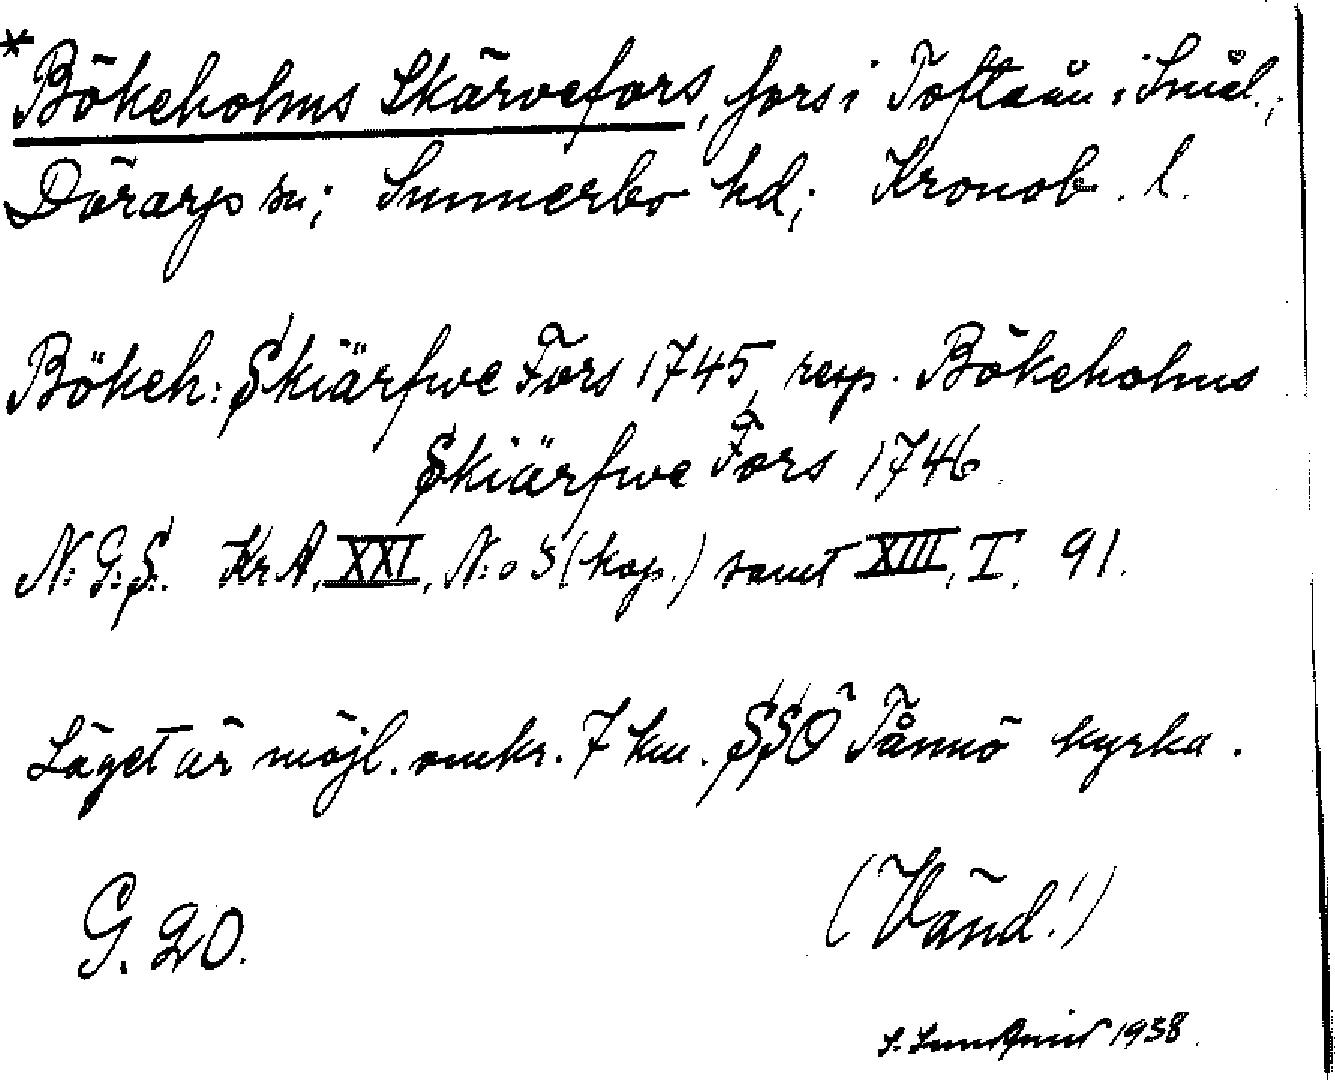 * Bökeholms Skärvefors, fors i Toftaån i Smål.;
Dörarps sn; Sunnerbo hd; Kronob. l.
Bökeh: Skiärfwe Fors 1745, resp. Bökeholms
Skiärfwe Fors 1746.
N:G:S. KrA, XXI, N:o 5 (kop.) samt XIII, I, 91.
Läget är möjl. omkr. 7 km. SSÖ Tånnö kyrka.
G. 20.
(Vänd!)
S. 1938.